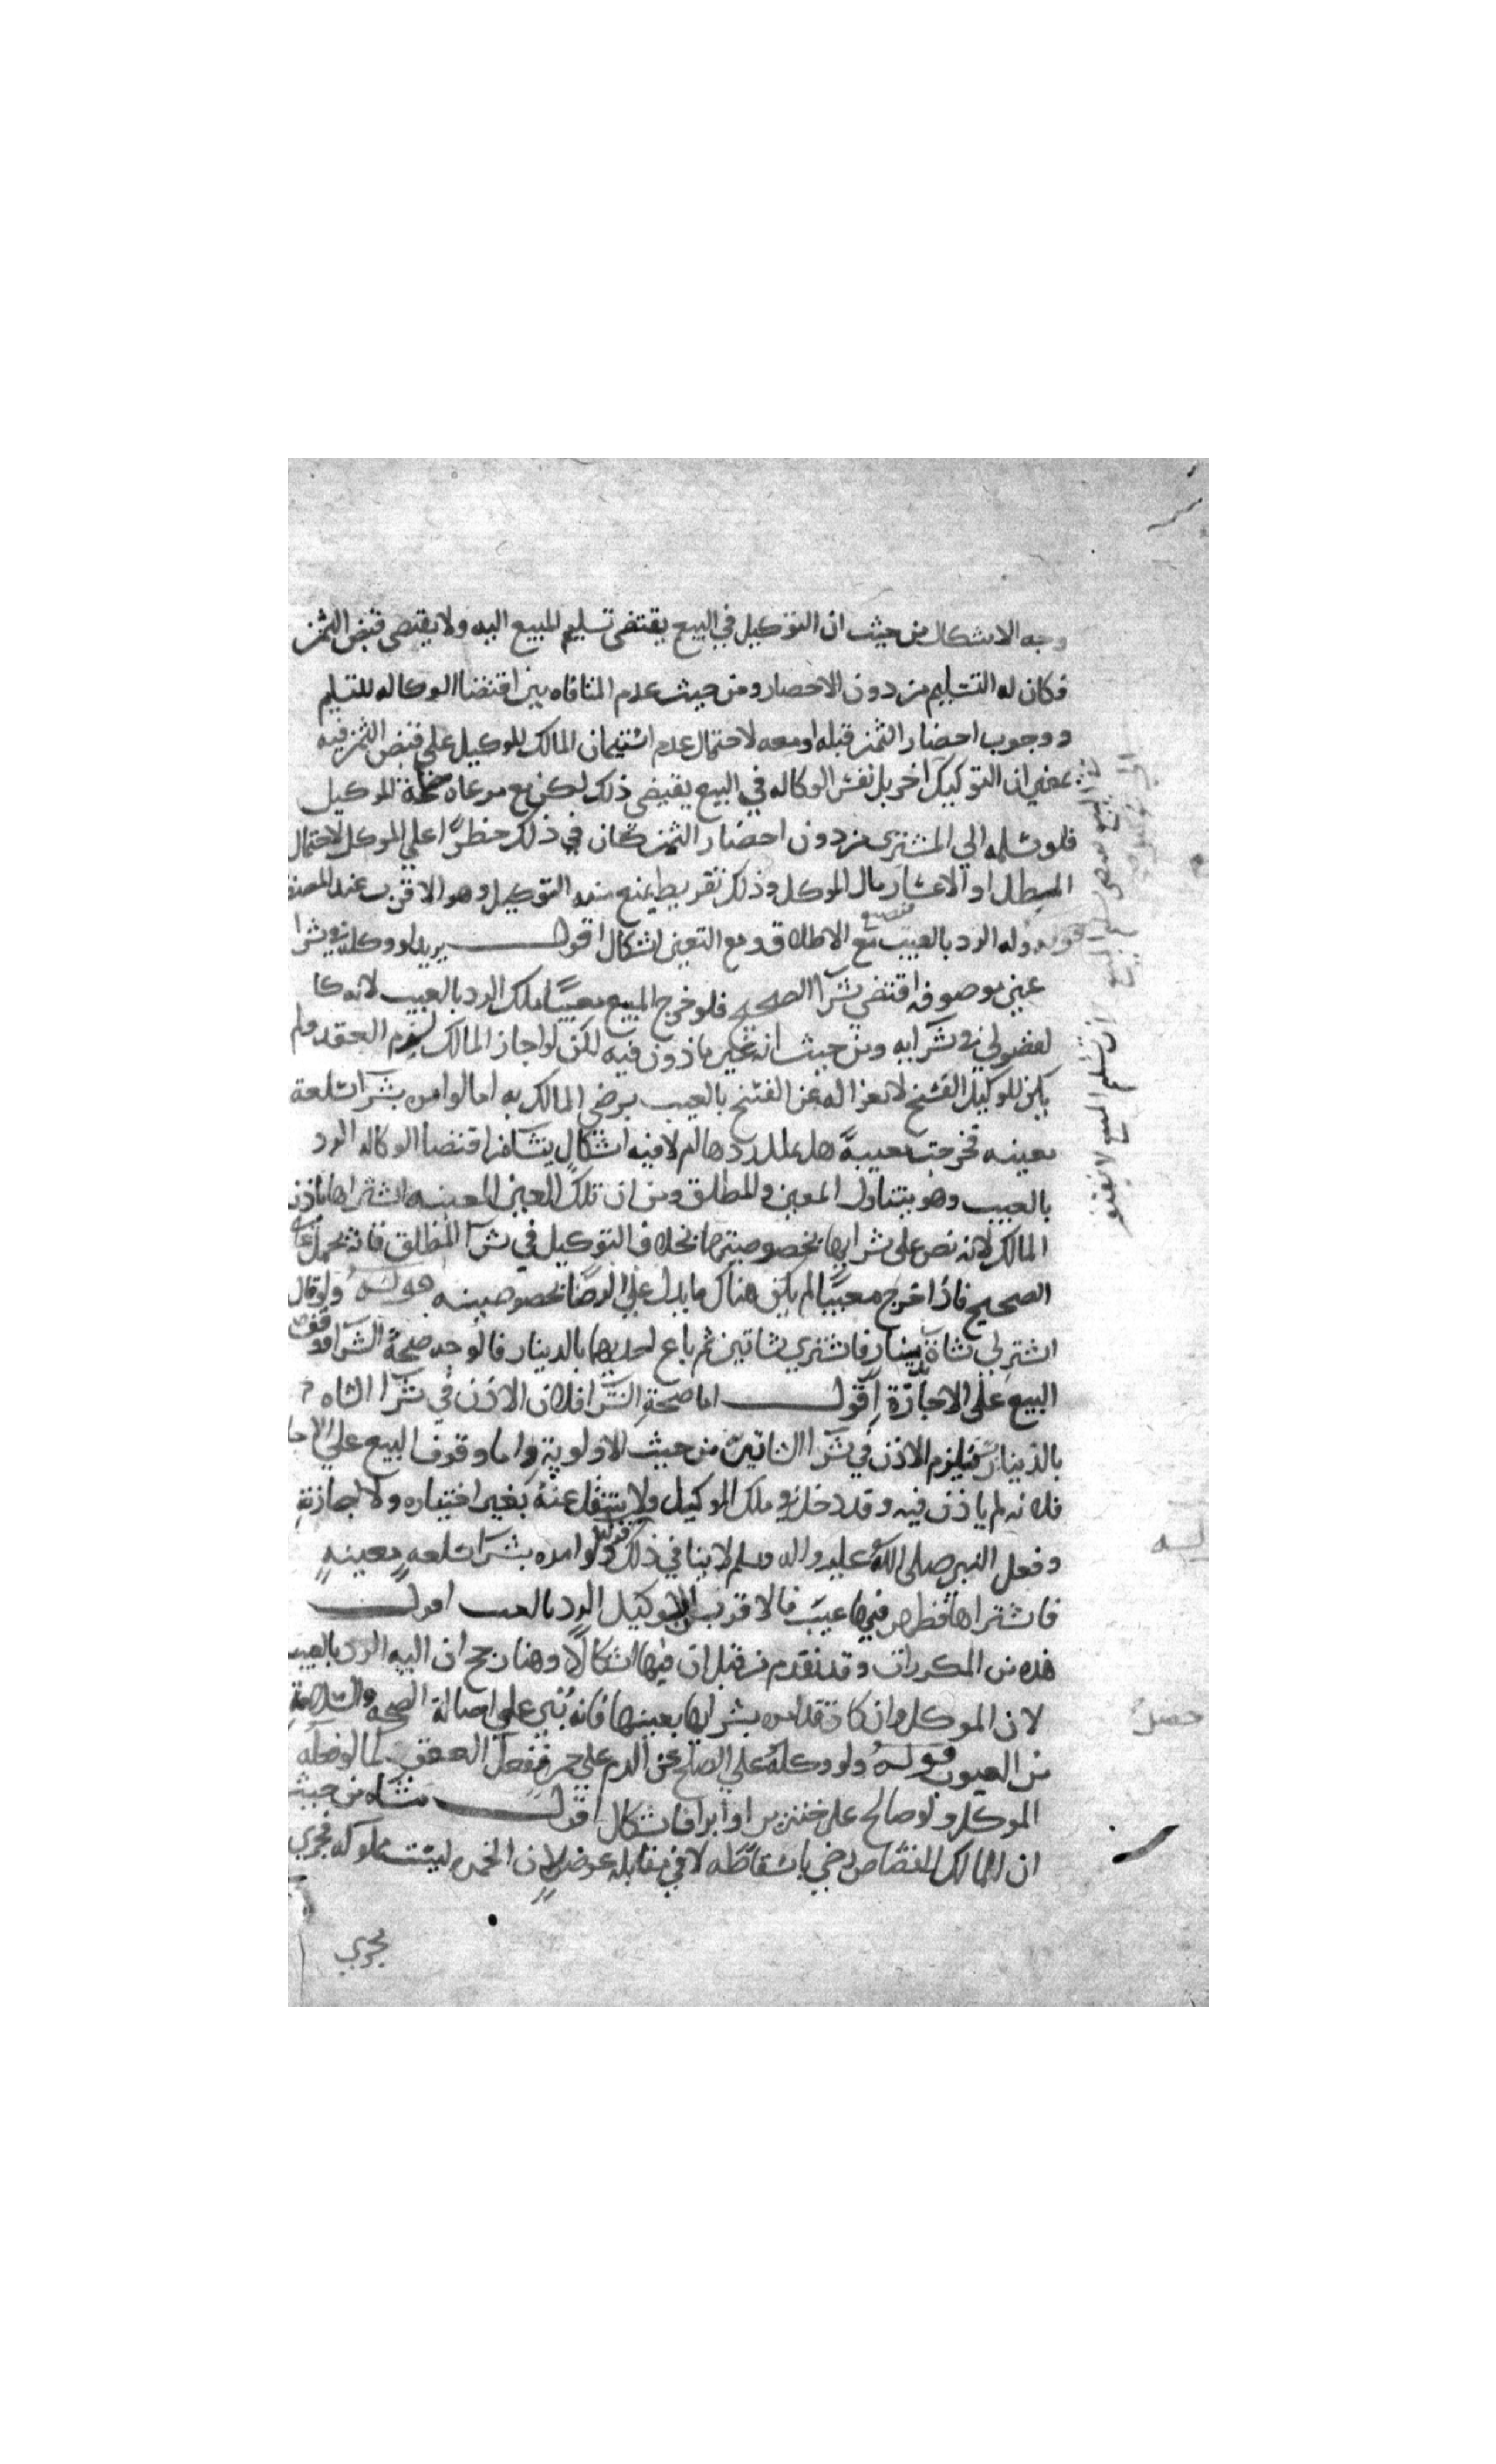 وجه الاشكال من حيث ان التوكيل في البيع يقتضى تسليم المبيع اليه ولا يقتضى قبض الثمن
فكان له التسليم من دون الاحضار ومن حيث عدم المنافاه بين اقتضا الوكاله للتسليم
ووجوب احضار الثمن قبله او معه لاحتمال عدم استيمان المالك للوكيل على قبض الثمن فيه
بمعنى ان التوكيل اخر بل نفس الوكاله في البيع يقتضى ذلك لكن مع مرعاه للموكيل
فلو سلمه الي المشترى من دون احضار الثمن كان في ذلك خطرًا علي الموكل لاحتمال
المطل او الاعسار بمال الموكل وذلك تفريط يمنع منه التوكيل وهو الاقرب عند المصنف
قوله وله الرد بالعيب مع الاطلاق ومع التعين اشكال اقول يريد لو وكله في شرا
عين موصوفه اقتضي شرا الصحيح فلو خرج المبيع معيبًا ملك الرد بالعيب لانه كا
لفضولي في شرايه ومن حيث انه غير ماذون فيه لكن لو اجاز المالك لزم العقد ولم
يكن للوكيل الفسخ لانعزاله عن الفسخ بالعيب برضي المالك به اما لو امره بشرا سلعة
معينه فخرجت معيبةً هل يملك ردها ام لا فيه اشكال ينشا من اقتضا الوكاله الرد
بالعيب وهو يتناول المعين والمطلق ومن ان تلك العين المعينه اشتراها باذن
المالك لانه نص على شرايها بخصوصيتها بخلاف التوكيل في شرا المطلق فانه يحمل على
الصحيح فاذا خرج معيبًا لم يكن هناك ما يدل علي الرضا بخصوصيته قوله ولو قال
اشتر لي شاة بدينار فاشترى شاتين ثم باع احديهما بالدينار فالوجه صحة الشرا ووقوف
البيع على الاجازة اقول اما صحة الشرا فلان الاذن في شرا الشاه
بالدينار يستلزم الاذن في شرا الشاتين من حيث الاولوية واما وقوف البيع علي الاجا
فلانه لم ياذن فيه وقد دخل في ملك الموكيل ولا ينتقل عنه بغير اختياره ولا اجازة
وفعل النبي صلى الله عليه واله وسلم لا ينافي ذلك قوله ولو امره بشرا سلعه معينه
فاشتراها فظهر فيها عيب فالاقرب ان للوكيل الرد بالعيب اقول
هذه من المكررات وقد تقدم من قبل ان فيها اشكالًا وهنا رجح ان اليه الرد بالعيب
لان الموكل وان كان قد امره بشرايها بعينها فانه بني علي اصالة الصحه والسلامة
من العيوب قوله ولو وكله علي الصلح عن الدم علي خمر ففعل العفو كما لو فعله
الموكل ولو صالح على خنزير او ابرا فاشكال اقول منشاه من حيث
ان المالك للقصاص رضي باسقاطه لا في مقابله عوض لان الخمر ليست مملوكه فجرى
يجري